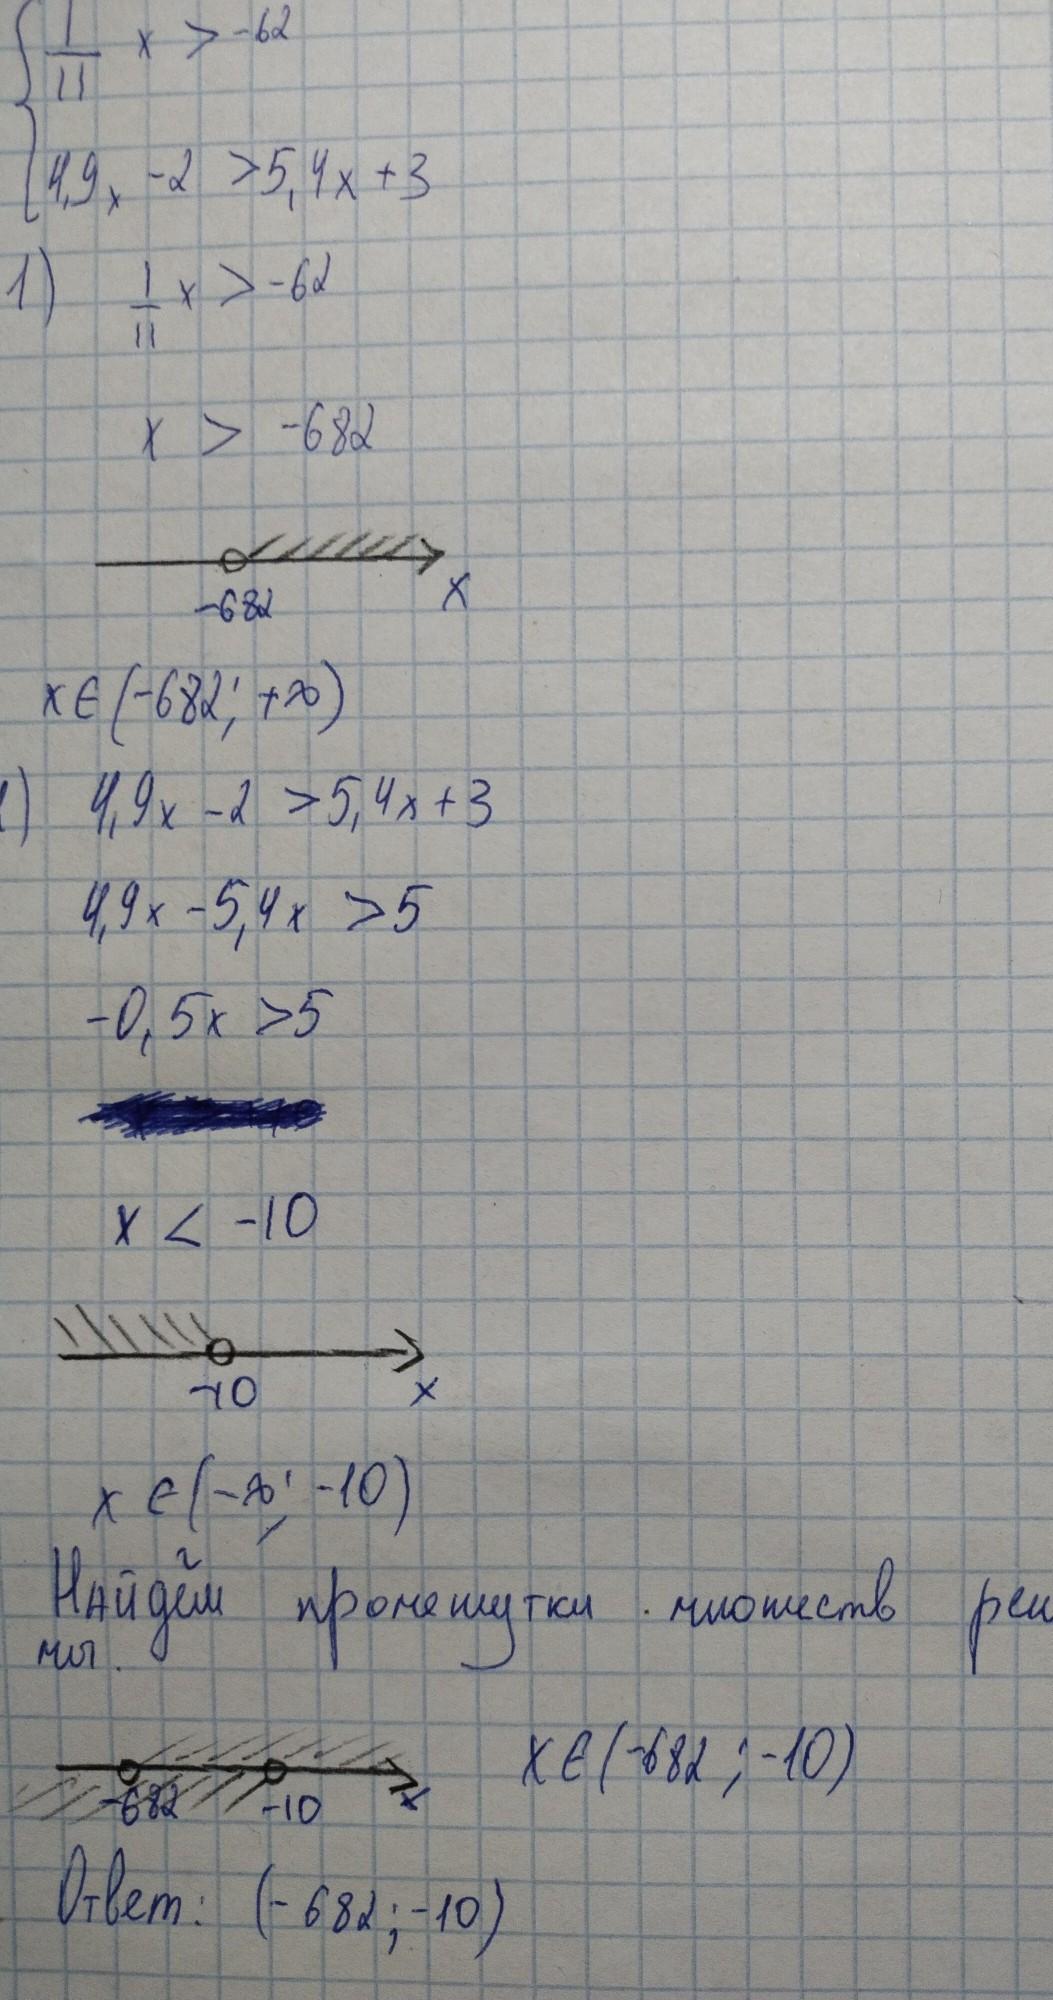 1/11 x > -62
4,9x - 2 > 5,4x + 3
1) 1/11 x > -62
x > -682
-682 x
x ∈ (-682; +∞)
) 4,9x - 2 > 5,4x + 3
4,9x - 5,4x > 5
-0,5x > 5
x < -10
-10 x
x ∈ (-∞; -10)
Найдём промежутки множеств реш
мы.
-682 -10 x x ∈ (-682; -10)
Ответ: (-682; -10)